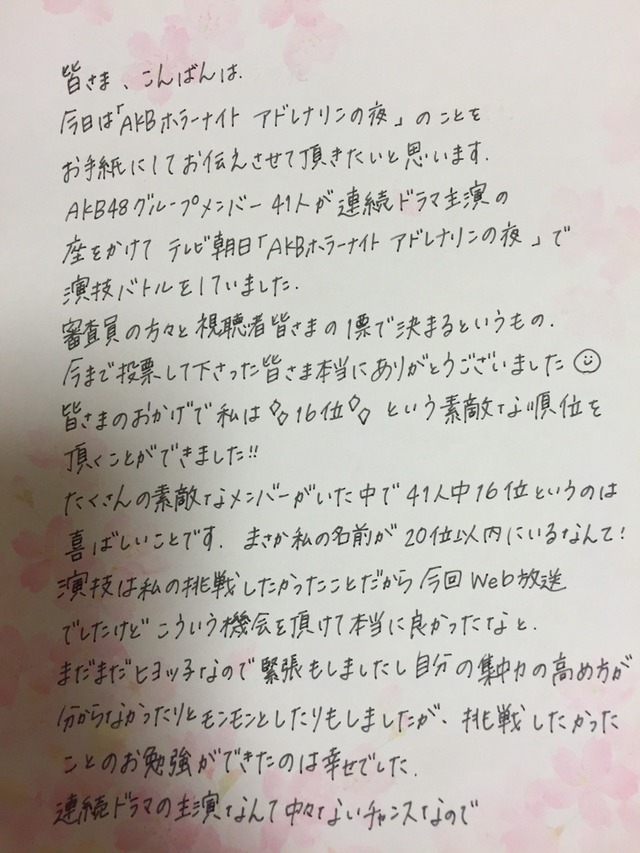 皆さま、こんばんは.
今日は「AKBホラーナイト アドレナリンの夜」のことを
お手紙にしてお伝えさせて頂きたいと思います.
AKB48グループメンバー41人が連続ドラマ主演の
座をかけて テレビ朝日「AKBホラーナイト アドレナリンの夜」で
演技バトルをしていました.
審査員の方々と視聴者皆さまの1票で決まるというもの.
今まで投票して下さった皆さま本当にありがとうございました☺
皆さまのおかげで私は◇◇16位◇◇という素敵な順位を
頂くことができました!!
たくさんの素敵なメンバーがいた中で41人中16位というのは
喜ばしいことです. まさか私の名前が20位以内にいるなんて!
演技は私の挑戦したかったことだから今回Web放送
でしたけどこういう機会を頂けて本当に良かったなと.
まだまだヒヨッ子なので緊張もしましたし自分の集中力の高め方が
分からなかったりとモンモンとしたりもしましたが、挑戦したかった
ことのお勉強ができたのは幸せでした.
連続ドラマの主演なんて中々ないチャンスなので